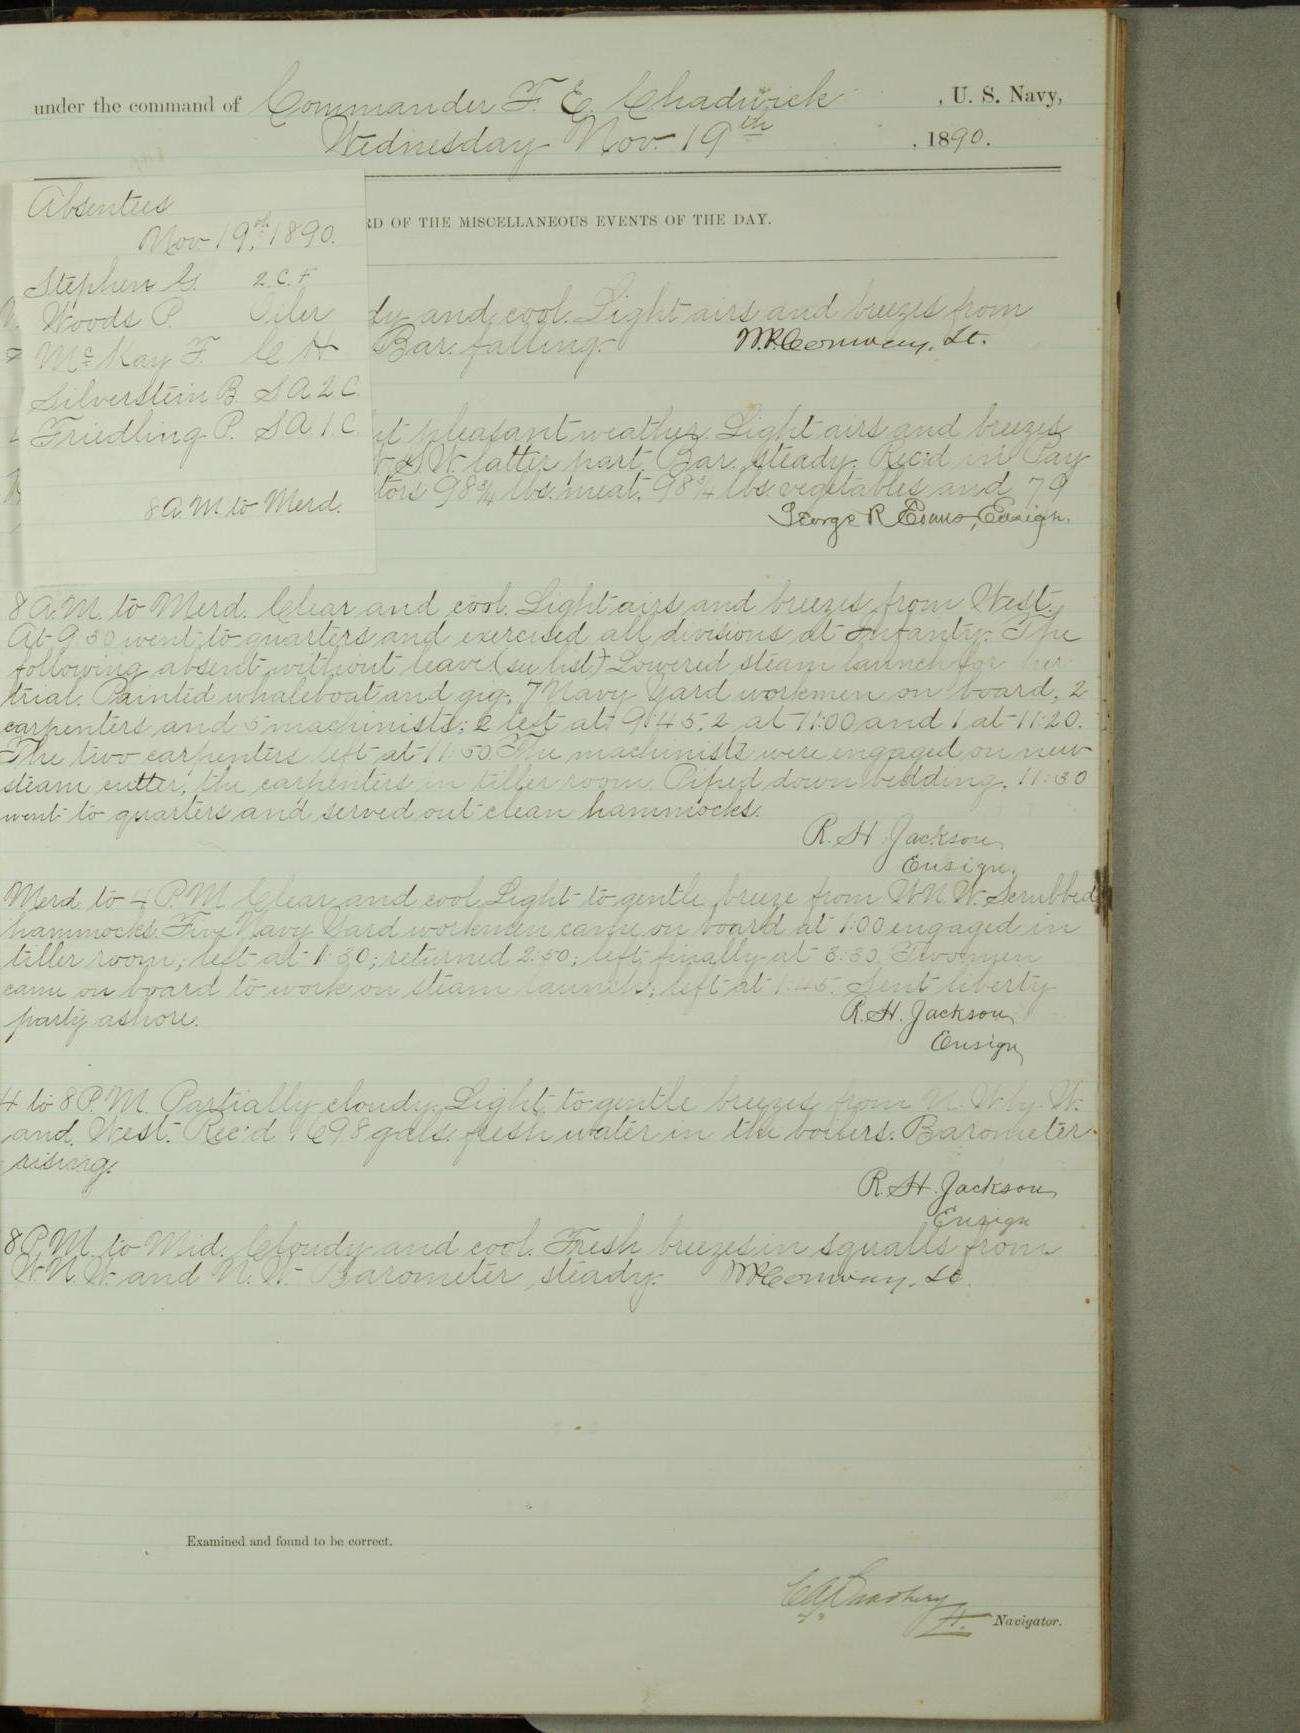 under the command of Commander F. E. Chadwick, U. S. Navy,
Wednesday Nov. 19th, 1890.
Absentees
Nov. 19th, 1890.
Stephen G. 2. C. F
Woods P. Oiler
McKay F. C H
Silverstein B. S A 2 C.
Friedling P. S A 1. C.
8 A. M. to Merd.
RD OF THE MISCELLANEOUS EVENTS OF THE DAY.
dy and cool. Light airs and breezes from
Bar. falling.
W.P. Conway, Lt.
pleasant weather. Light airs and breezes
S W. latter part. Bar. steady. Rec'd in Pay
tors 98 3/4 lbs. meat, 98 3/4 lbs. vegetables and 79
George R Evans, Ensign.
8 A.M. to Merd. Clear and cool. Light airs and breezes from West.
At 9.30 went to quarters and exercised all divisions at Infantry. The
following absent without leave (see list) Lowered steam launch for her
trial. Painted whaleboat and gig. 7 Navy Yard workmen on board, 2
carpenters and 5 machinists; 2 left at 9:45, 2 at 11:00 and 1 at 11:20.
The two carpenters left at 11:50. The machinists were engaged on new
steam cutter, the carpenters in tiller room. Piped down bedding. 11:30
went to quarters and served out clean hammocks.
R. H. Jackson
Ensign.
Merd. to 4 P.M. Clear and cool. Light to gentle breeze from W N W. Scrubbed
hammocks. Five Navy Yard workmen came on board at 1:00 engaged in
tiller room; left at 1:30; returned 2:50; left finally at 3:30. Two men
came on board to work on steam launch; left at 1:45. Sent liberty
party ashore.
R. H. Jackson
Ensign
4 to 8 P. M. Partially cloudy. Light to gentle breezes from N. W. by W.
and West. Rec'd 1698 gals. fresh water in the boilers. Barometer
rising.
R. H. Jackson
Ensign
8 P. M. to Mid. Cloudy and cool. Fresh breezes in squalls from
W N W and N. W. Barometer steady.
WP Conway, Lt.
Examined and found to be correct.
Lt. Navigator.